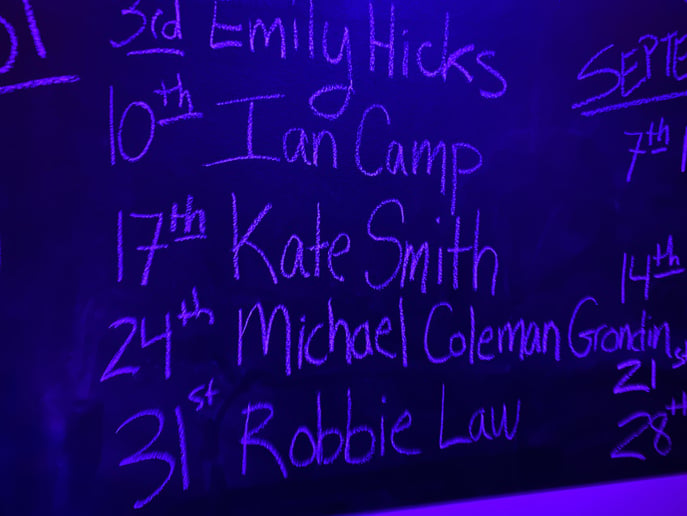 3rd Emily Hicks
10th Ian Camp
17th Kate Smith
24th Michael Coleman Grondin
31st Robbie Law
7th
14th
21st
28th